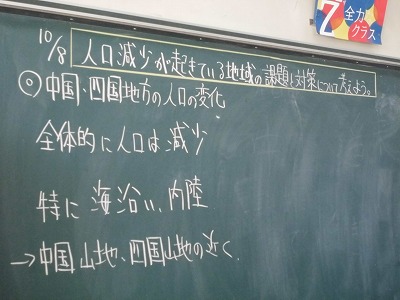 7 全力
クラス
10/8 人口減少が起きている地域の課題と対策について考えよう。
◎中国・四国地方の人口の変化
全体的に人口は減少
特に 海沿い、内陸
→中国山地、四国山地の近く